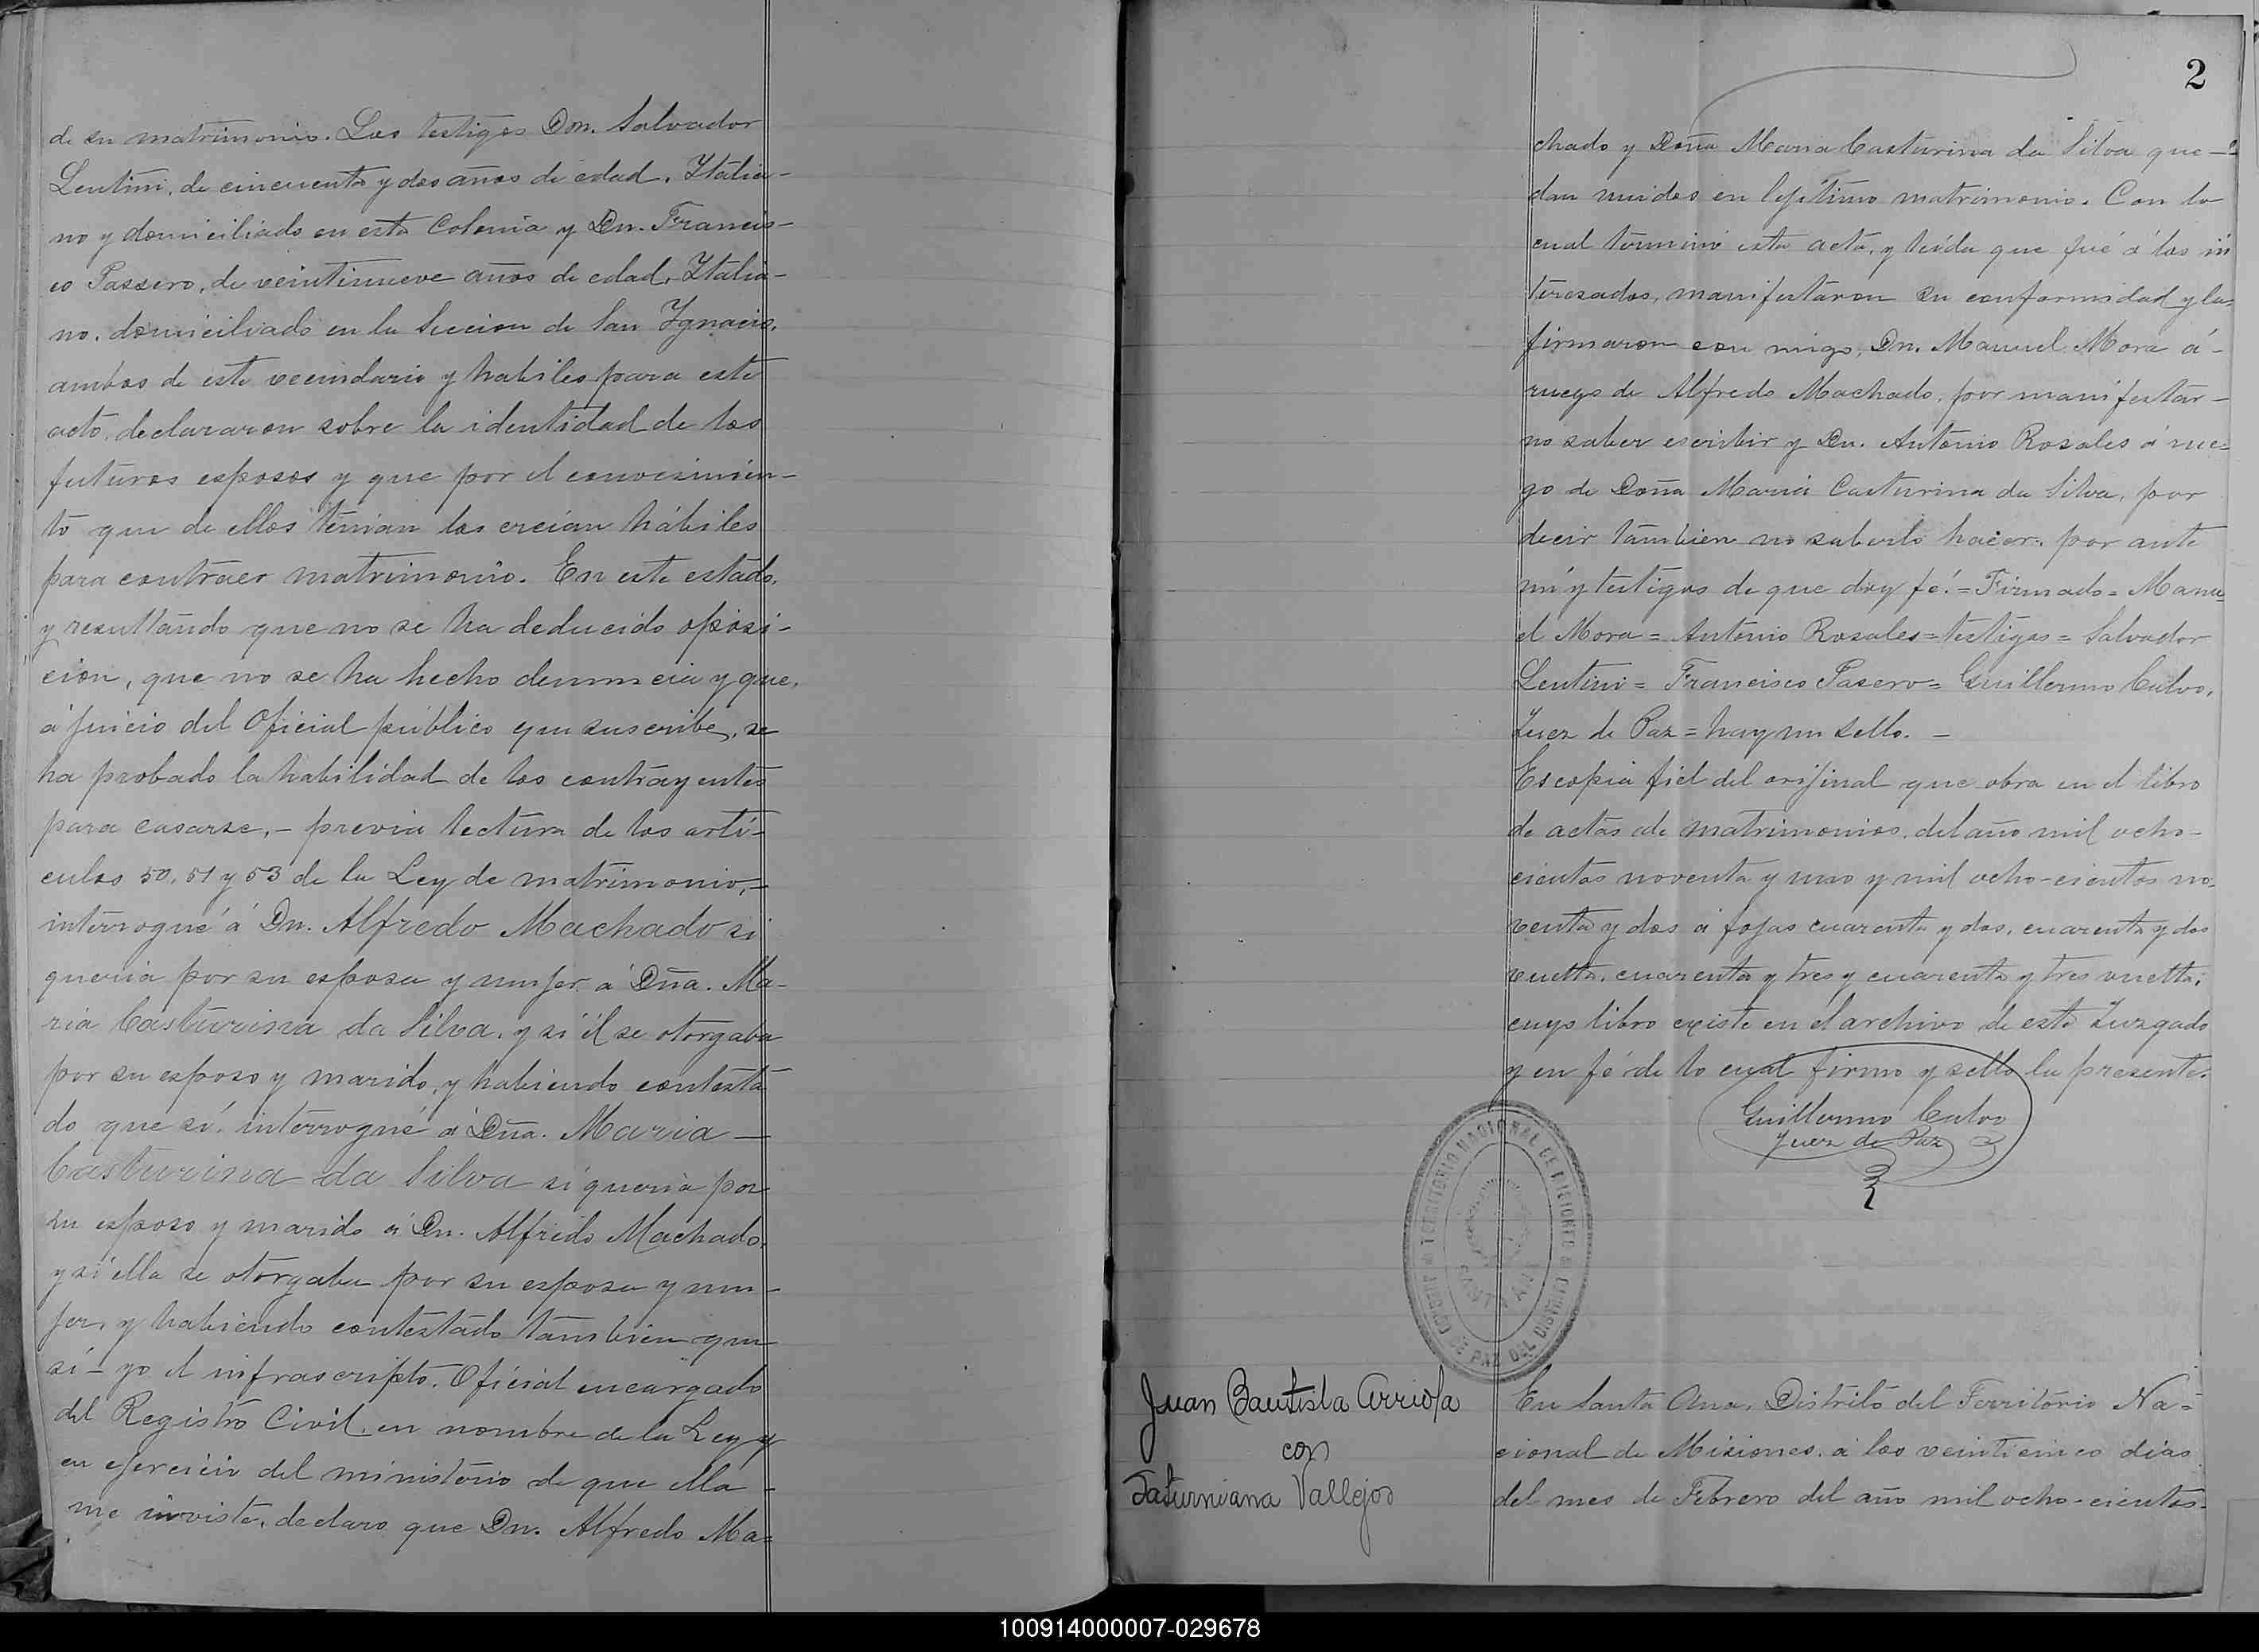 de su matrimonio. Los testigos Don. Salvador
Lentini, de cincuenta y dos años de edad, Italia-
no y domiciliado en esta Colonia y Dn. Francis-
co Passero, de veintinueve años de edad, Italia-
no, domiciliado en la Seccion de San Ygnacio,
ambos de este vecindario y habiles para este
acto, declararon sobre la identidad de los
futuros esposos y que por el conocimien-
to que de ellos tenian los creían hábiles
para contraer matrimonio. En este estado,
y resultando que no se ha deducido oposi-
cion, que no se ha hecho denuncia y que,
á juicio del Oficial público que suscribe, se
ha probado la habilidad de los contrayentes
para casarse, - previa lectura de los artí-
culos 50, 51 y 53 de la Ley de matrimonio,-
interrogué á Dn. Alfredo Machado si
queria por su esposa y mujer á Dña. Ma-
ria Casturina da Silva, y si él se otorgaba
por su esposo y marido, y habiendo contesta
do que sí, interrogué á Dña. Maria —
Casturina da Silva si queria por
su esposo y marido á Dn. Alfredo Machado,
y si ella se otorgaba por su esposa y mu-
jer, y habiendo contestado tambien que
sí - yo el infrascripto, Oficial encargado
del Registro Civil, en nombre de la Ley y
en ejercicio del ministerio de que ella -
me inviste, declaro que Dn. Alfredo Ma=
2
chado y Doña Maria Casturina da Silva que-
dan unidos en lejitimo matrimonio. Con lo
cual terminó esta acta, y leida que fué á los in
teresados, manifestaron su conformidad y la
firmaron con migo, Dn. Manuel Mora á-
ruego de Alfredo Machado, por manifestar-
no saber escribir y Dn. Antonio Rosales á rue-
go de Doña Maria Casturina da Silva, por
decir tambien no saberlo hacer, por ante
mi y testigos de que doy fé. = Firmado = Manu-
el Mora = Antonio Rosales = testigos = Salvador
Lentini = Francisco Pasero = Guillermo Calvo,
Juez de Paz = hay un sello. -
Es copia fiel del orijinal que obra en el libro
de actas de matrimonios, del año mil ocho-
cientos noventa y uno y mil ocho-cientos no-
venta y dos á fojas cuarenta y dos, cuarenta y dos
vuelta, cuarenta y tres y cuarenta y tres vuelta,
cuyo libro existe en el archivo de este Juzgado
y en fé de lo cual firmo y sello la presente.
Guillermo Calvo
Juez de Paz
JUZGADO DE PAZ DEL DISTRITO
TERRITORIO NACIONAL DE MISIONES
SANTA ANA
Juan Bautista Arriola
con
Saturniana Vallejos
En Santa Ana, Distrito del Territorio Na-
cional de Misiones, á los veinticinco dias
del mes de Febrero del año mil ocho-cientos-
100914000007-029678